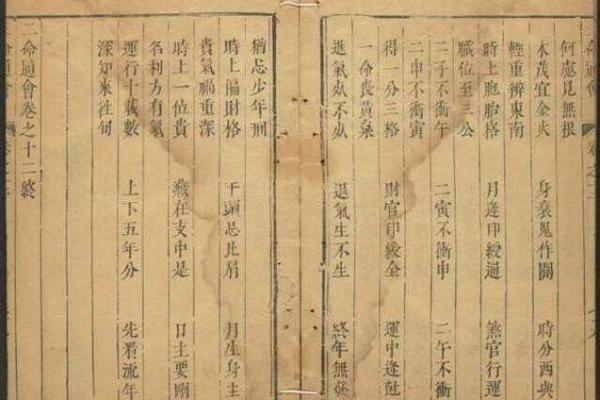 何處見無根
木茂宜金火 身衰見作關 時分西與
輕重辨東南
時上胞胎格 月逢印綬通 煞官行運
職位至三公
二子不衝午 二寅不衝申 二午不衝
二申不衝寅
得一分三格 財官印綬全 運中逢尅
一命喪黃泉
進氣死不死 退氣生不生 終年無發
猶忌少年刑
時上偏財格 干頭忌比肩 月生身主
貴氣福重深
時上一位貴 藏在支中是 日主要剛
名利方有氣
運行十載數 上下五年分 先看流年
深知來往旬
三命通會卷之十二終